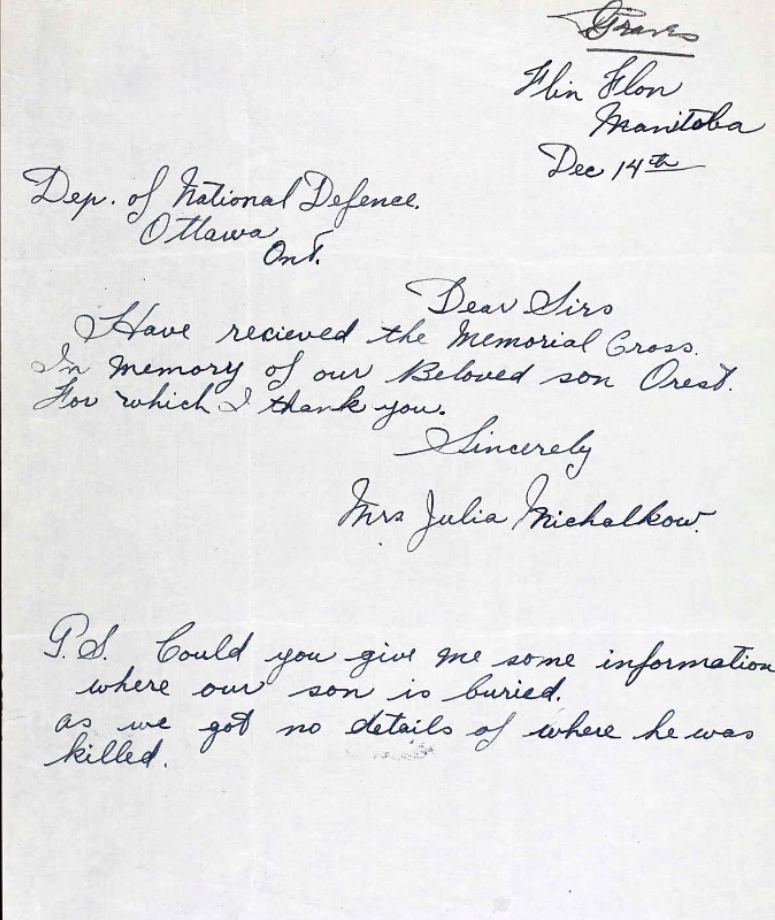 Graves
Flin Flon
Manitoba
Dec 14th
Dep. of National Defence.
Ottawa
Ont.
Dear Sirs
I Have recieved the Memorial Cross.
In memory of our Beloved son Orest.
For which I thank you.
Sincerely
Mrs Julia Michalkow.
P.S. Could you give me some information
where our son is buried.
as we got no details of where he was
killed.